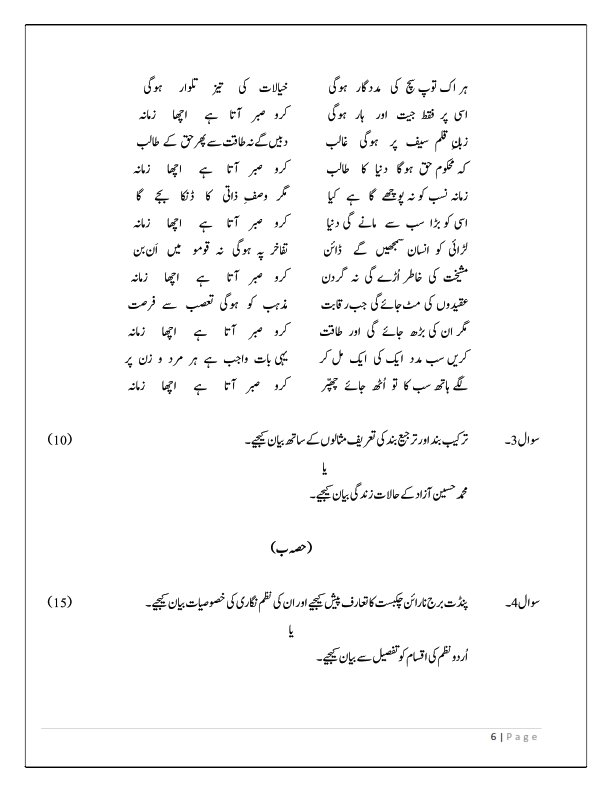 ہر اک توپ سچ کی مددگار ہوگی خیالات کی تیز تلوار ہوگی
اسی پر فقط جیت اور ہار ہوگی کرو صبر آتا ہے اچھا زمانہ
زبانِ قلم سیف پر ہوگی غالب دبیں گے نہ طاقت سے پھر حق کے طالب
کہ محکوم حق ہوگا دنیا کا طالب کرو صبر آتا ہے اچھا زمانہ
زمانہ نسب کو نہ پوچھے گا ہے کیا مگر وصفِ ذاتی کا ڈنکا بجے گا
اسی کو بڑا سب سے مانے گی دنیا کرو صبر آتا ہے اچھا زمانہ
لڑائی کو انسان سمجھیں گے ڈائن تفاخر پہ ہوگی نہ قومو میں اَن بن
مشیخت کی خاطر اُڑے گی نہ گردن کرو صبر آتا ہے اچھا زمانہ
عقیدوں کی مٹ جائے گی جب رقابت مذہب کو ہوگی تعصب سے فرصت
مگر ان کی بڑھ جائے گی اور طاقت کرو صبر آتا ہے اچھا زمانہ
کریں سب مدد ایک کی ایک مل کر یہی بات واجب ہے ہر مرد و زن پر
لگے ہاتھ سب کا تو اُٹھ جائے چھپّر کرو صبر آتا ہے اچھا زمانہ
سوال3۔ ترکیب بند اور ترجیع بند کی تعریف مثالوں کے ساتھ بیان کیجیے۔ (10)
یا
محمد حسین آزاد کے حالات زندگی بیان کیجیے۔
(حصہ ب)
سوال4۔ پنڈت برج نارائن چکبست کا تعارف پیش کیجیے اور ان کی نظم نگاری کی خصوصیات بیان کیجیے۔ (15)
یا
اُردو نظم کی اقسام کو تفصیل سے بیان کیجیے۔
6 | Page